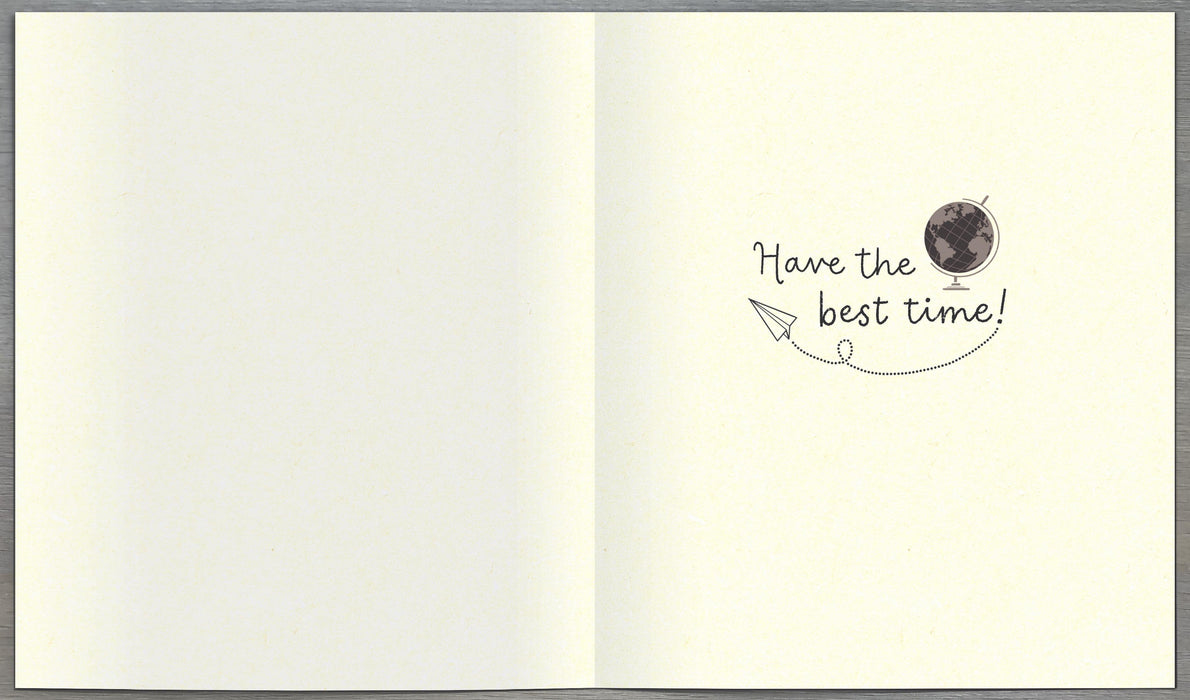 Have the
best time!